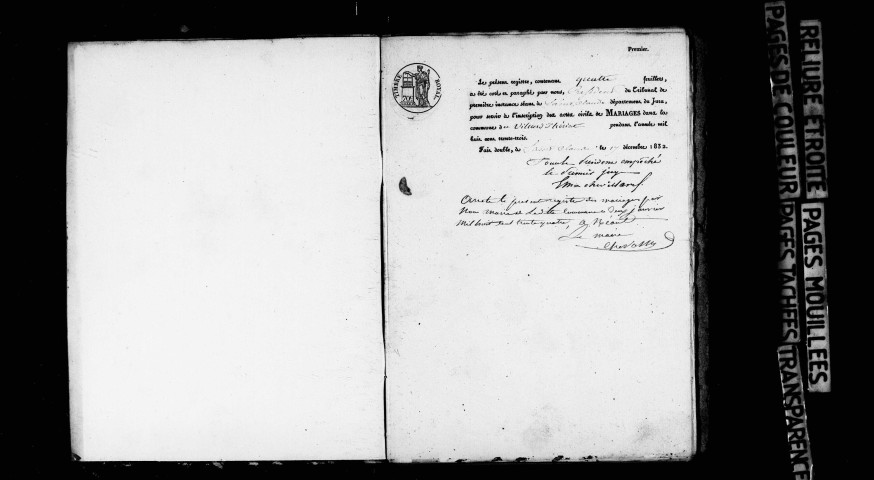 Premier.
TIMBRE ROYAL
Le présent registre, contenant feuillets,
a été coté et paraphé par nous, Président du Tribunal de
première instance séant à département du Jura,
pour servir à l'inscription des actes civils de MARIAGES dans la
commune de pendant l'année mil
huit cent trente-trois.
Fait double, à Saint Claude le décembre 1832.
Pour le Président empêché
le Premier juge
Arrêté le présent registre des mariages par
Nous maire de la dite Commune le deux janvier
Mil huit cent trente quatre, a
Le maire
RELIURE ETROITE
PAGES DE COULEUR
PAGES MOUILLEES
PAGES TACHEES
TRANSPARENCE